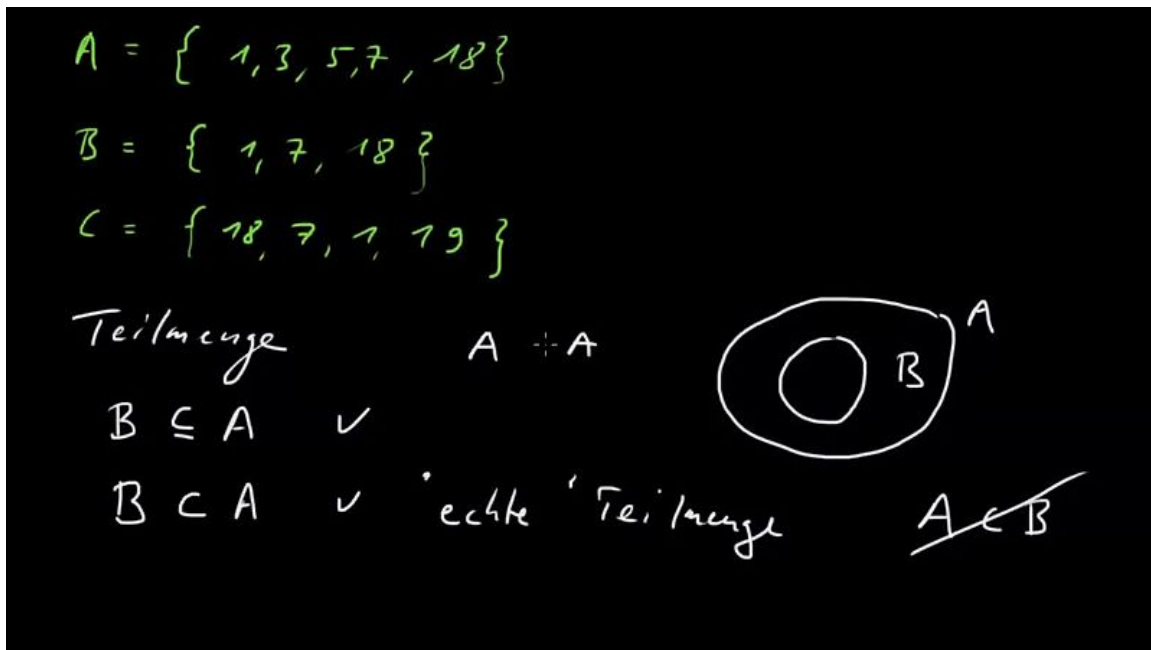 A = { 1, 3, 5, 7, 18 }
B = { 1, 7, 18 }
C = { 18, 7, 1, 19 }
Teilmenge A A
A
B
B ⊆ A ✓
B ⊂ A ✓ 'echte' Teilmenge A ⊂ B